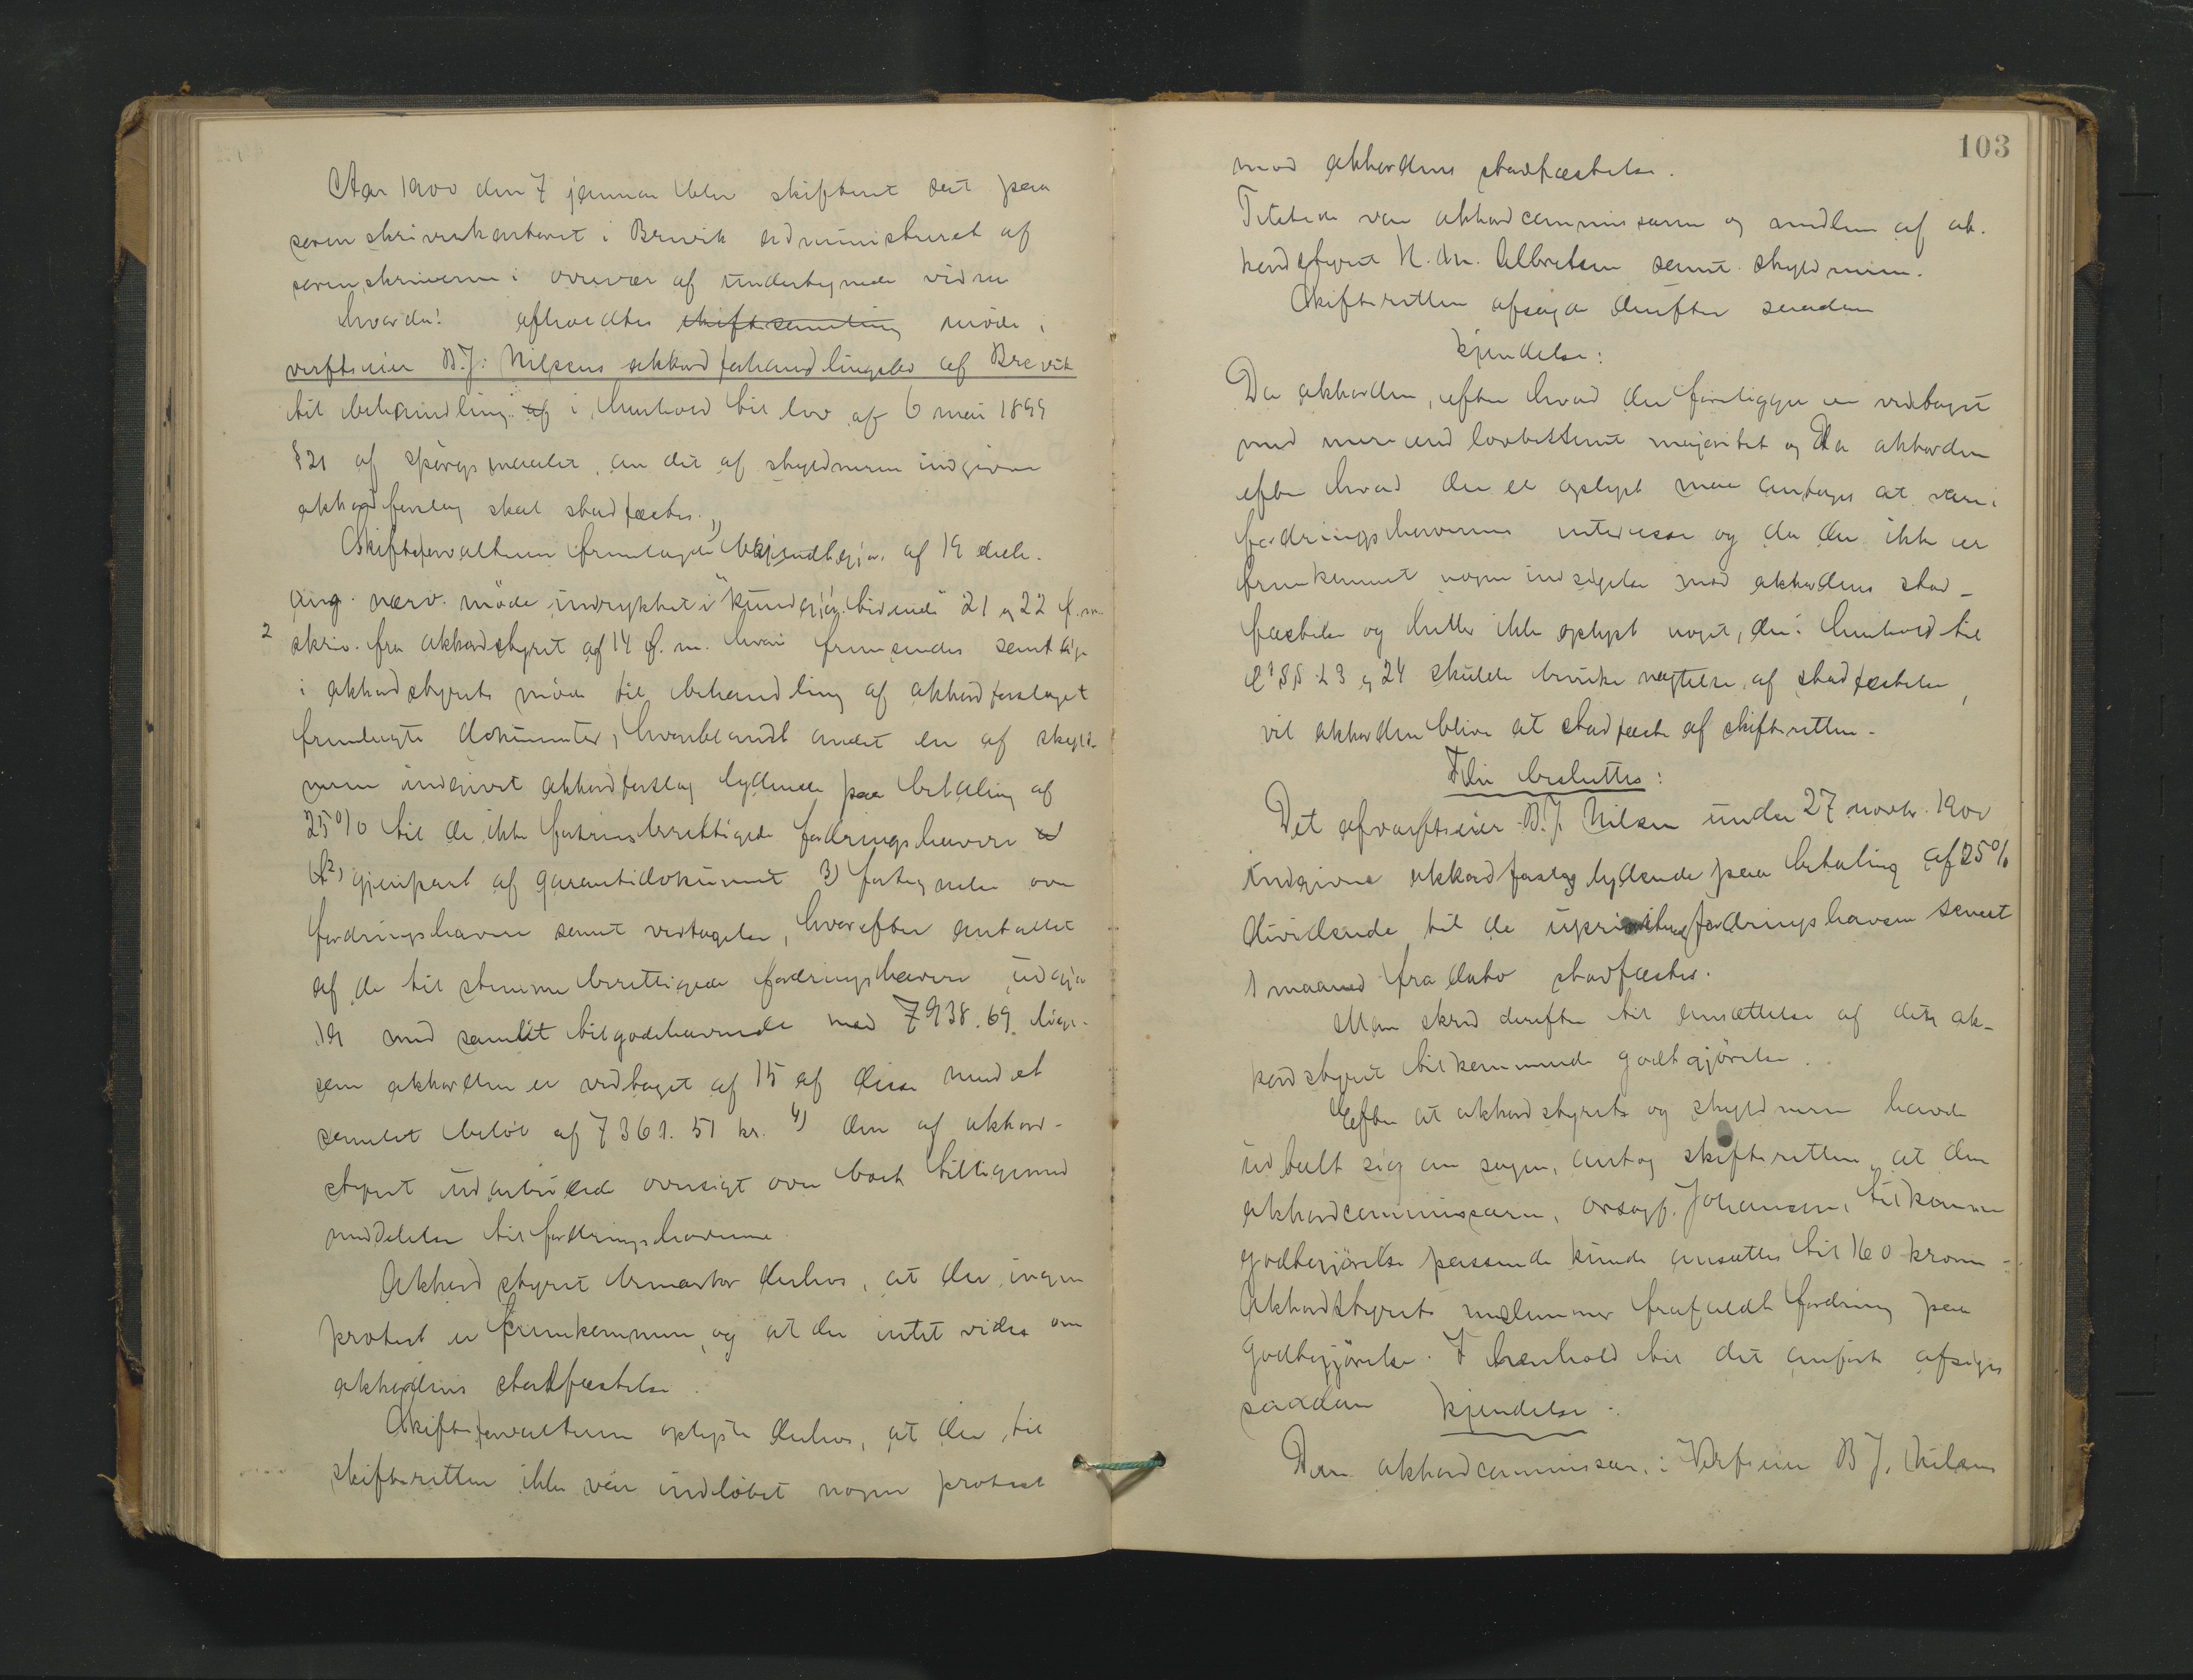 Aar 1900 den 7 januar blev skifteret sat paa
sorenskriverkontoret i Brevik administreret af
sorenskriveren i overvær af undertegnede vidne
hvorda: afholdtes skiftesamling møde i
verftseier B.J. Nilsens akkordforhandlingsbo af Brevik
til behandling af i henhold til lov af 6 mai 1899
§ 21 af spørgsmaalet, om det af skyldneren indgivne
akkordforslag skal stadfæstes.
Skifteforvalteren fremlagde 1) bekjendtgjør. af 19 decb.
ang. nærv. møde indrykket i "kundgj. tidende" 21 og 22 f.m.
2 skriv. fra akkordstyret af 14 f.m. hvori fremsendes samtlige
i akkordstyrets møde til behandling af akkordforslaget
fremlagte dokumenter, hvoriblandt andet en af skyld-
neren indgivet akkordforslag lydende paa betaling af
25 % til de ikke fortrinsberettigede fordringshavere
2) gjenpart af garantidokument 3) fortegnelse over
fordringshavere samt vedtagelse, hvorefter antallet
af de til stemme berettigede fordringshavere udgjør
19 med samlet tilgodehavende med 7938.69. lige-
som akkorden er vedtaget af 15 af disse med et
samlet beløb af 7361.51 kr. 4) den af akkord-
styret udarbeidede oversigt over boet tilligemed
meddelelse til fordringshaverne.
Akkordstyret bemærker derhos, at der ingen
protest er fremkommen, og at der intet vides om
akkordens stadfæstelse.
Skifteforvalteren oplyste derhos, at der til
skifteretten ikke var indløbet nogen protest
103
mod akkordens stadfæstelse.
Tilstede var akkordcommissæren og medlem af ak-
kordstyret N. Chr. Albretsen samt skyldneren.
Skifteretten afsagde derefter saadan
kjendelse:
Da akkorden, efter hvad der foreligger er vedtaget
med mere end lovbestemt majoritet og da akkorden
efter hvad der er oplyst maa antages at være i
fordringshavernes interesse og da der ikke er
fremkommet nogen indsigelse mod akkordens stad-
fæstelse og heller ikke oplyst noget, der i henhold til
l's §§ 23 og 24 skulde bevirke nægtelse af stadfæstelse,
vil akkorden blive at stadfæste af skifteretten.
Thi besluttes:
Det af verftseier B.J. Nilsen under 27 novbr. 1900
indgivne akkordforslag lydende paa betaling af 25 %
dividende til de upriviligerede fordringshavere senest
1 maaned fra dato stadfæstes.
Man skred derefter til ansættelse af den ak-
kordstyret tilkommende godtgjørelse.
Efter at akkordstyret og skyldneren havde
udtalt sig om sagen, antog skifteretten at den
akkordcommissæren, overs.gf. Johansen, tilkomne
godtgjørelse passende kunde ansættes til 160 kroner.
Akkordstyrets medlemmer frafaldt fordring paa
godtgjørelse. I henhold til det anførte afsiges
saadan kjendelse:
Den akkordcommissæren i Verftseier B J. Nilsens